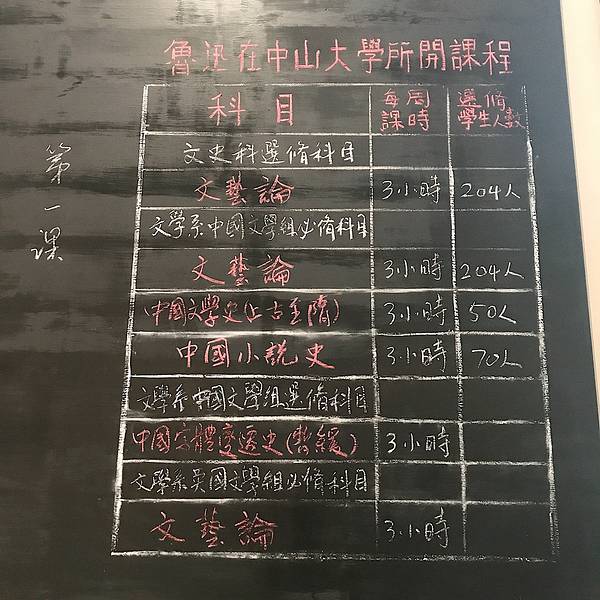 魯迅在中山大學所開課程
第一课
科目 每周課時 選修學生人數
文史科選修科目
文藝論 3小時 204人
文學系中國文學組必修科目
文藝論 3小時 204人
中國文學史(上古至隋) 3小時 50人
中國小說史 3小時 70人
文學系中國文學組選修科目
中國字體變遷史(暫緩) 3小時
文學系英國文學組必修科目
文藝論 3小時